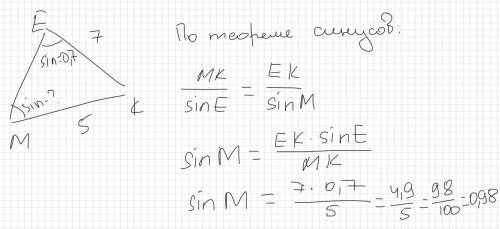 E
7
sin=0,7
sin-?
M
5
K
По теореме синусов:
MK/sinE = EK/sinM
sinM = EK · sinE/MK
sinM = 7 · 0,7/5 = 4,9/5 = 98/100 = 0,98